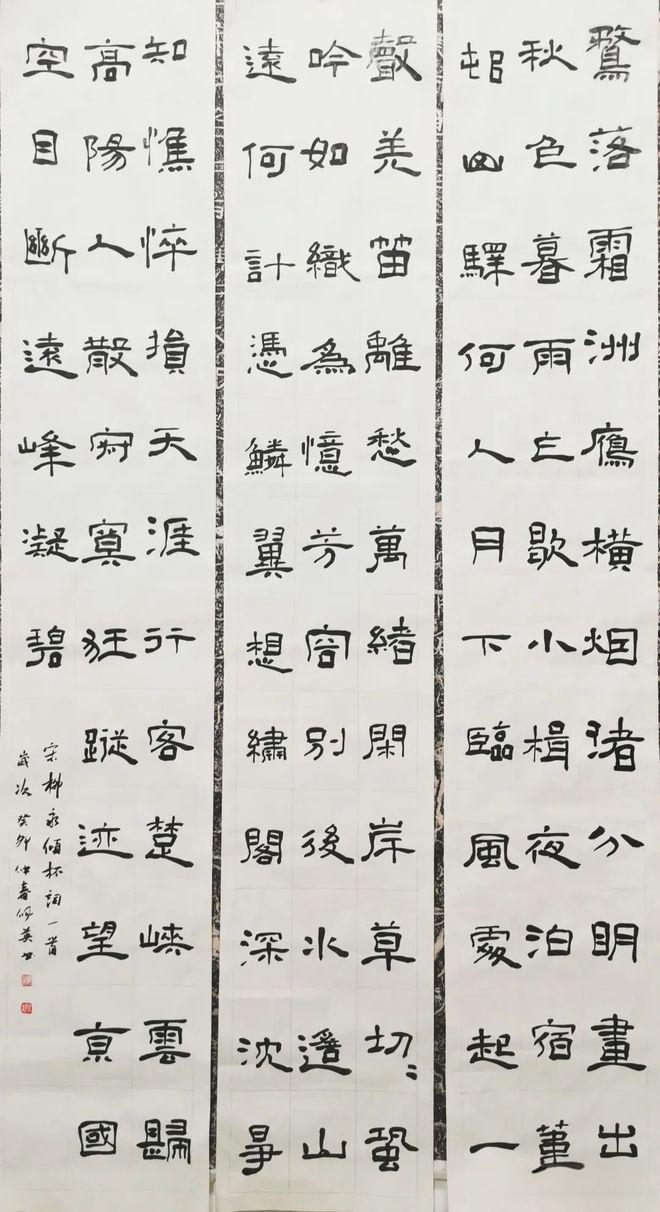 鶩落霜洲鴈橫烟渚分明畫出
秋色暮雨乍歇小楫夜泊宿葦
邨山驛何人月下臨風處起一
聲羌笛離愁萬緒閑岸草切〻蛩
吟如織為憶芳容別後水遙山
遠何計憑鱗翼想繡閣深沈爭
知憔悴損天涯行客楚峽雲歸
高陽人散寂寞狂蹤迹望京國
空目斷遠峰凝碧
宋柳永傾杯詞一首
歲次癸卯仲春佩英書